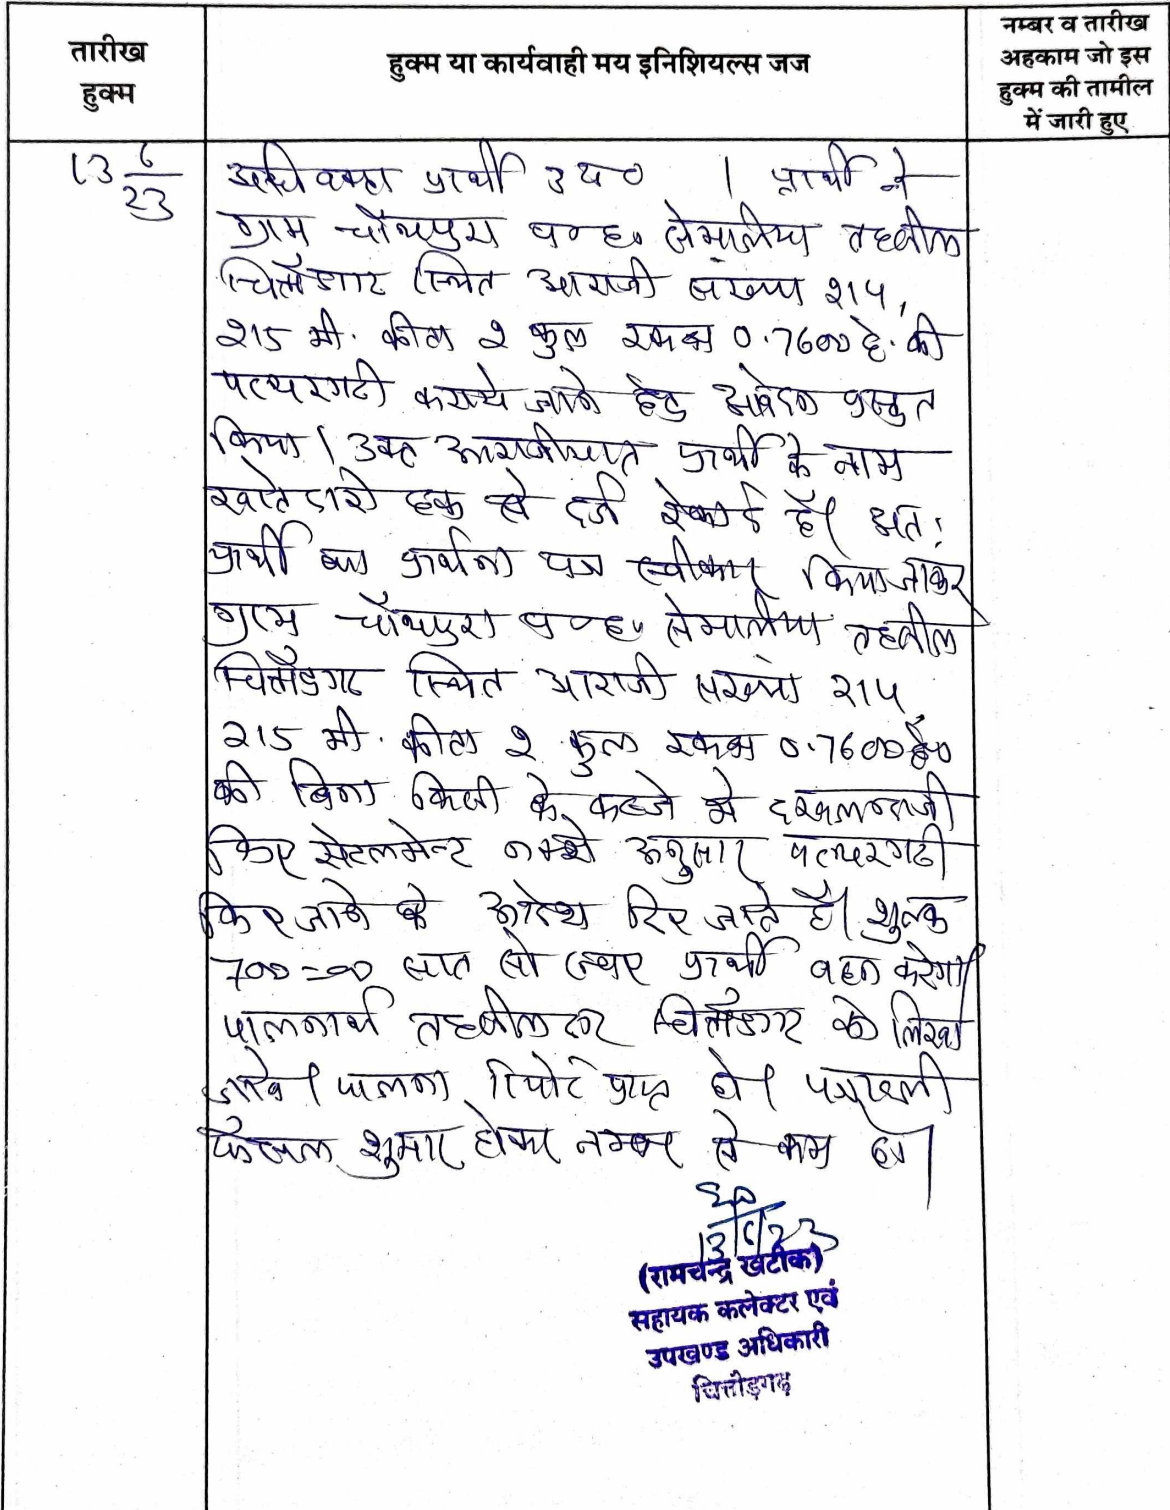 तारीख
हुक्म
हुक्म या कार्यवाही मय इनिशियल्स जज
नम्बर व तारीख
अहकाम जो इस
हुक्म की तामील
में जारी हुए
13 6/23
अधिवक्ता प्रार्थी उप० । प्रार्थी ने
ग्राम चौथपुरा प०ह० सेमालिया तहसील
चित्तौड़गढ़ स्थित आराजी संख्या 214,
215 मी. कीता 2 कुल रकबा 0.7600 हे. की
पत्थरगढी कराये जाने हेतु आवेदन प्रस्तुत
किया। उक्त आराजीयात प्रार्थी के नाम
खातेदारी हक से दर्ज रेकार्ड है। अत:
प्रार्थी का प्रार्थना पत्र स्वीकार किया जाकर
ग्राम चौथपुरा प०ह० सेमालिया तहसील
चित्तौड़गढ़ स्थित आराजी संख्या 214,
215 मी. कीता 2 कुल रकबा 0.7600 है०
की बिना किसी के कब्जे मे दखलन्दाजी
किए सेटलमेन्ट नक्शे अनुसार पत्थरगढी
किए जाने के आदेश दिए जाते है। शुल्क
700=00 सात सो रुपए प्रार्थी वहन करेगा।
पालनार्थ तहसीलदार चित्तौड़गढ़ को लिखा
जावे। पालना रिपोर्ट प्राप्त हो। पत्रावली
फैसल शुमार होकर नम्बर से कम हो।
13/6/23
(रामचन्द्र खटीक)
सहायक कलेक्टर एवं
उपखण्ड अधिकारी
चित्तौड़गढ़